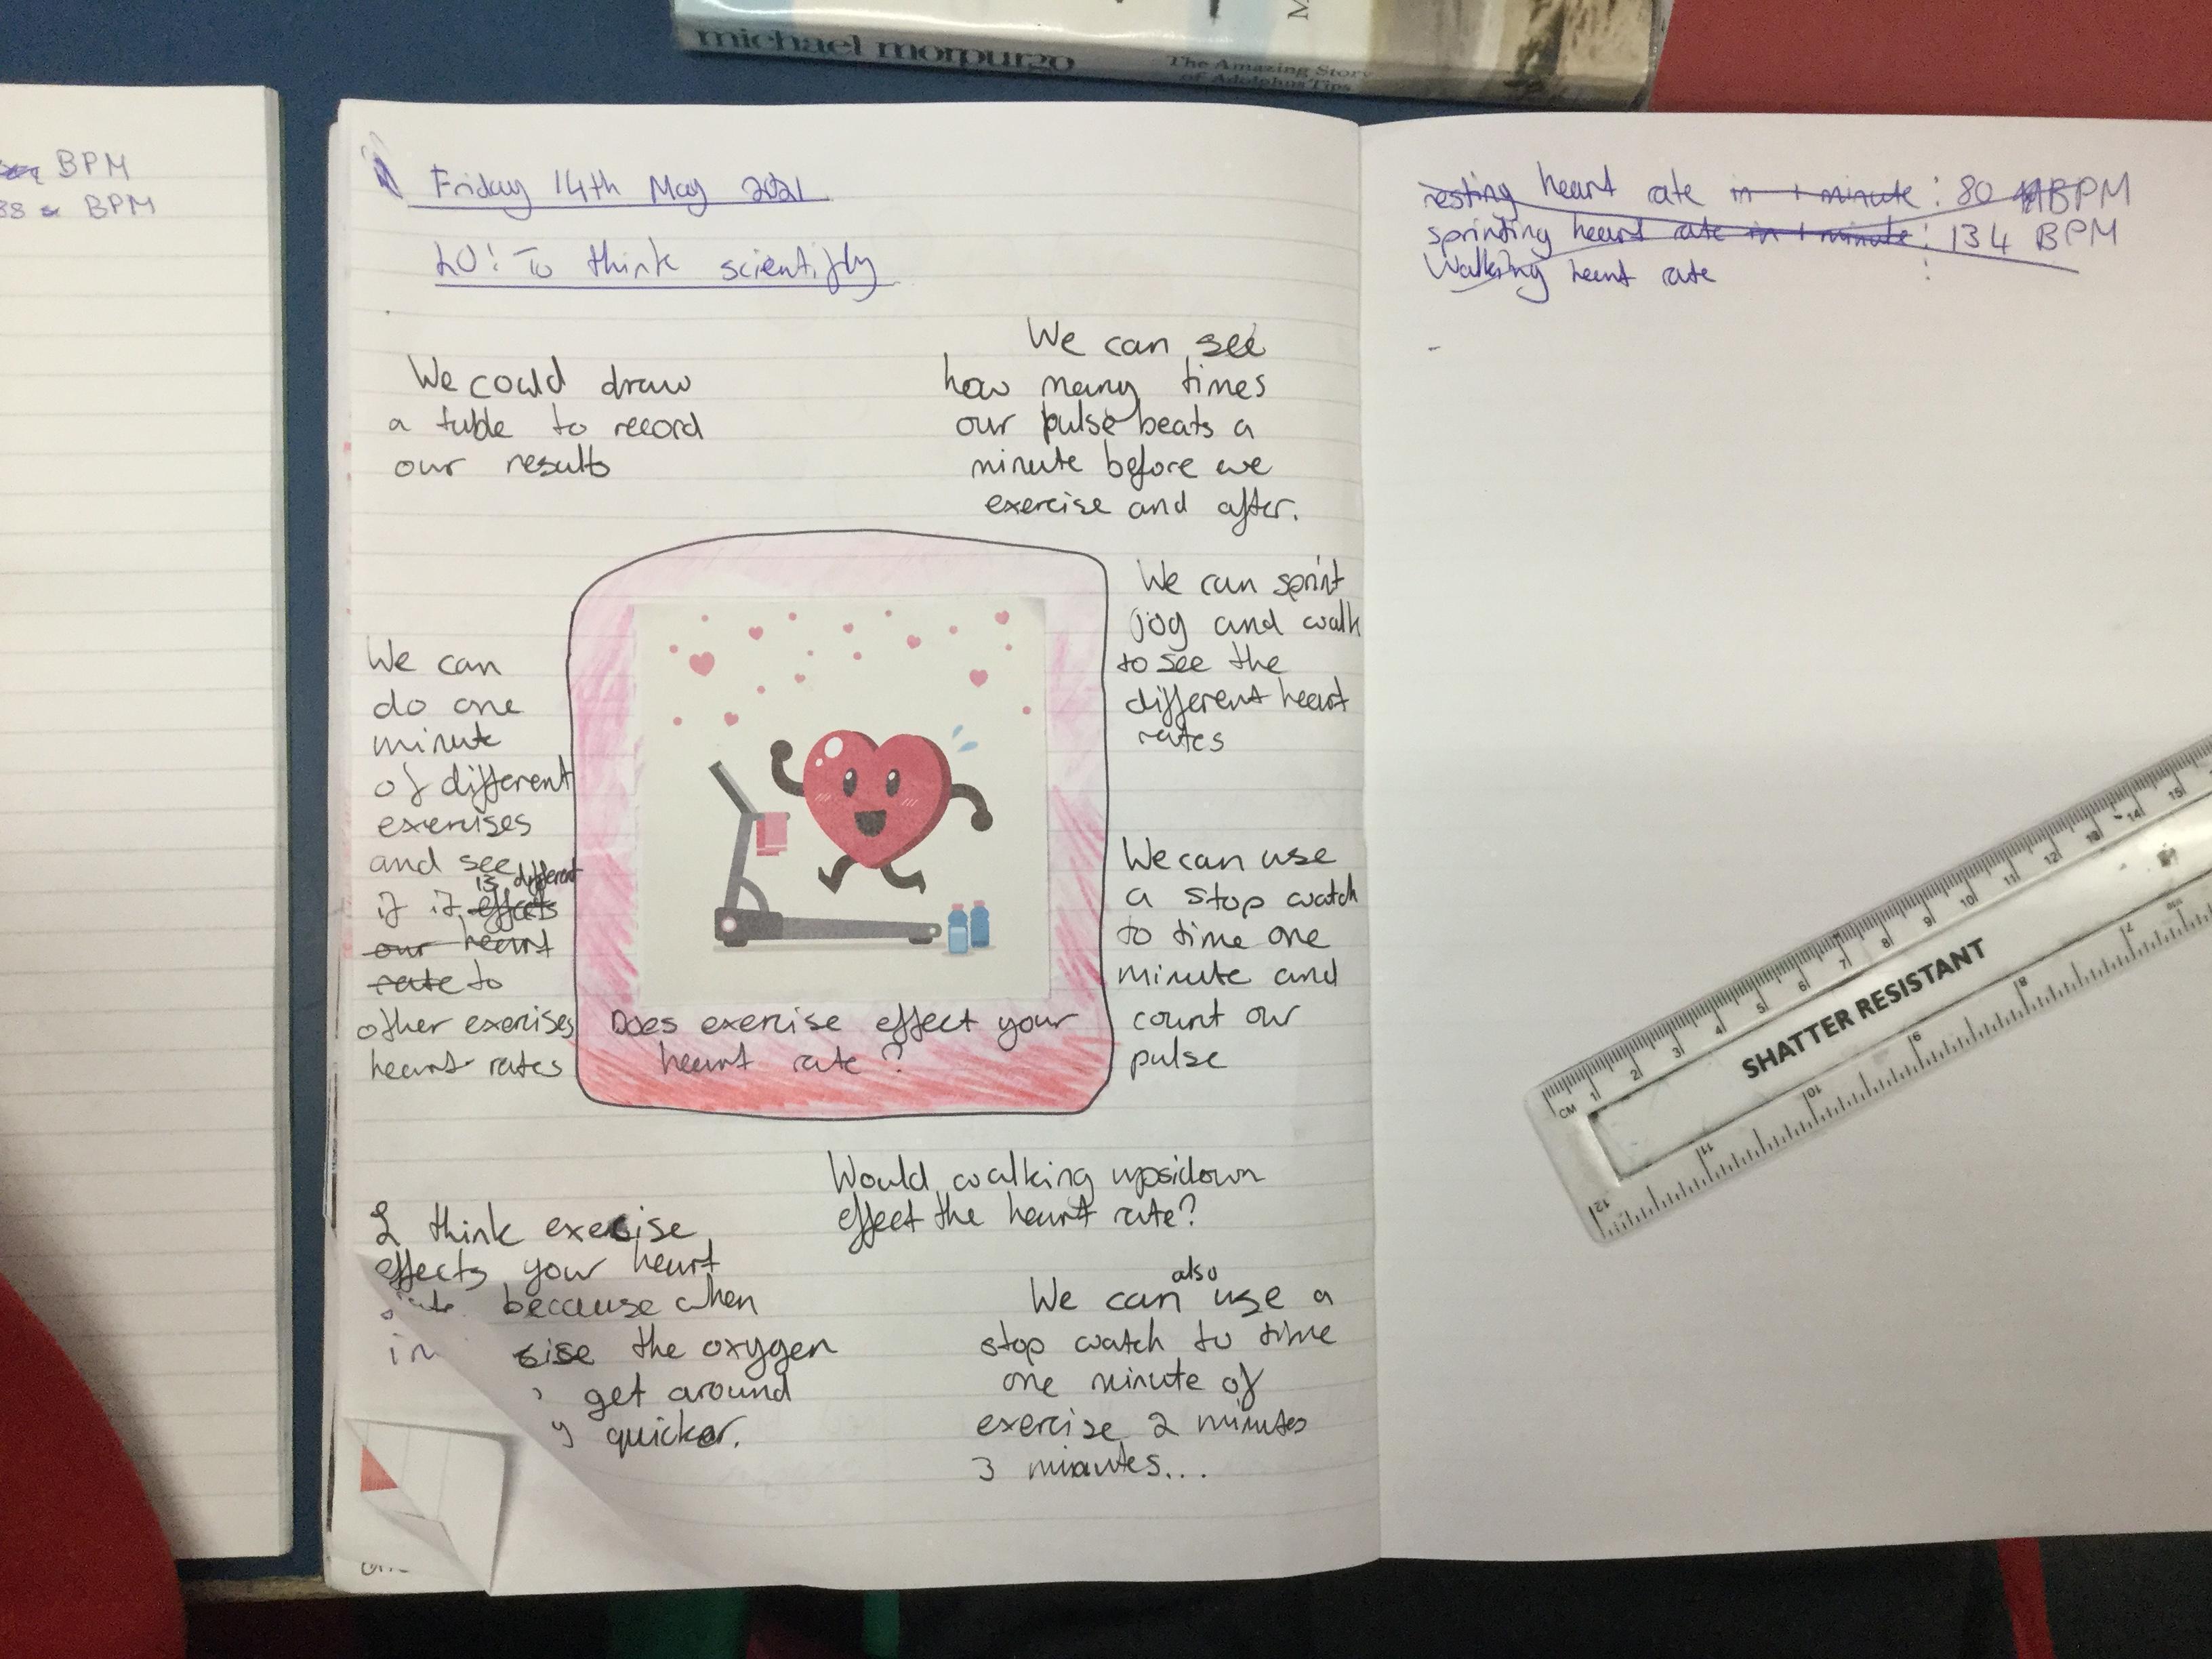 michael morpurgo
The Amazing Story
of Adolphus Tips
M
BPM
88 BPM
Friday 14th May 2021
LO: To think scientifly
We could draw
a table to record
our results
We can see
how many times
our pulse beats a
minute before we
exercise and after.
We can sprint
jog and walk
to see the
different heart
rates
We can
do one
minute
of different
exercises
and see
is different
if it effects
our heart
rate to
other exercises
heart rates
Does exercise effect your
heart rate?
We can use
a stop watch
to time one
minute and
count our
pulse
Would walking upsidown
effect the heart rate?
I think exercise
effects your heart
because when
the oxygen
get around
quicker.
also
We can use a
stop watch to time
one minute of
exercise 2 minutes
3 minutes...
resting heart rate in 1 minute: 80 BPM
sprinting heart rate in 1 minute: 134 BPM
Walking heart rate :
CM 1 2 3 4 5 6 7 8 9 10 11 12 13 14 15
SHATTER RESISTANT
12 11 10 9 8 7